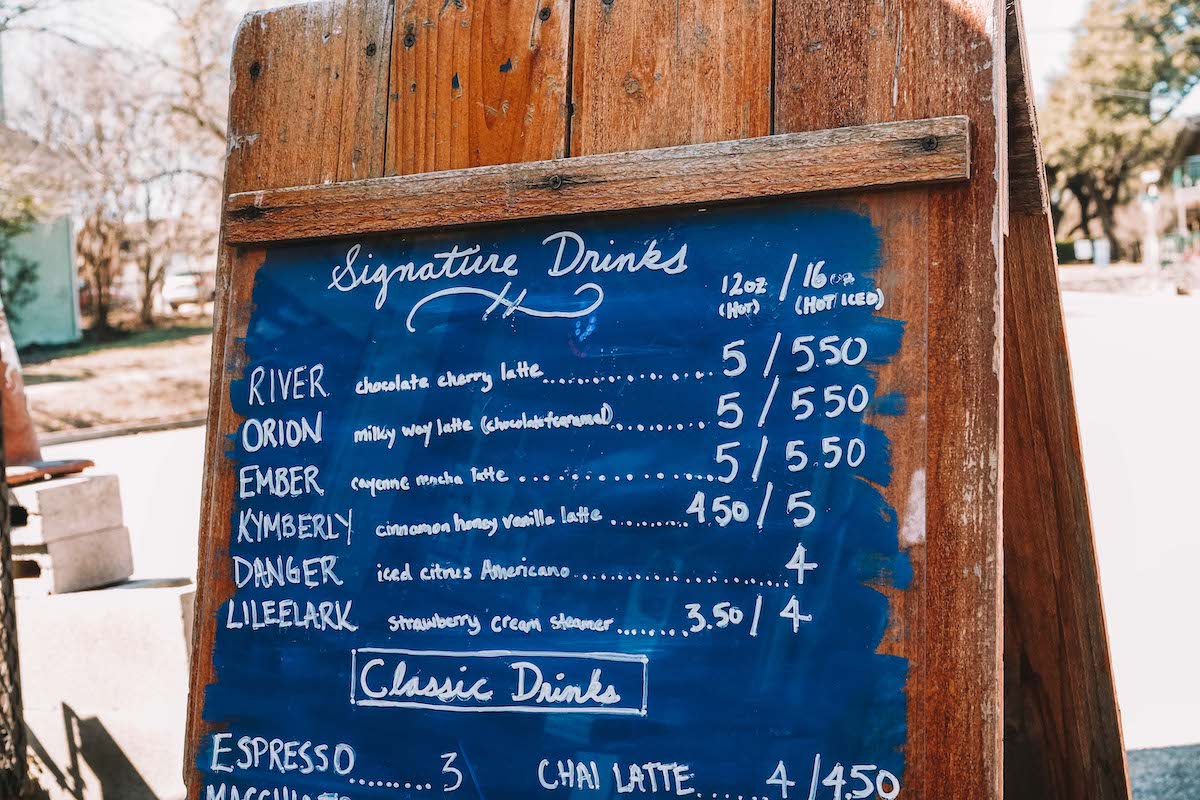 Signature Drinks
12oz / 16oz
(HOT) (HOT/ICED)
RIVER chocolate cherry latte.................. 5 / 5.50
ORION milky way latte (chocolate+caramel).......... 5 / 5.50
EMBER cayenne mocha latte .................. 5 / 5.50
KYMBERLY cinnamon honey vanilla latte ......... 4.50 / 5
DANGER iced citrus Americano........................ 4
LILEELARK strawberry cream steamer......... 3.50 / 4
Classic Drinks
ESPRESSO......... 3 CHAI LATTE......... 4 / 4.50